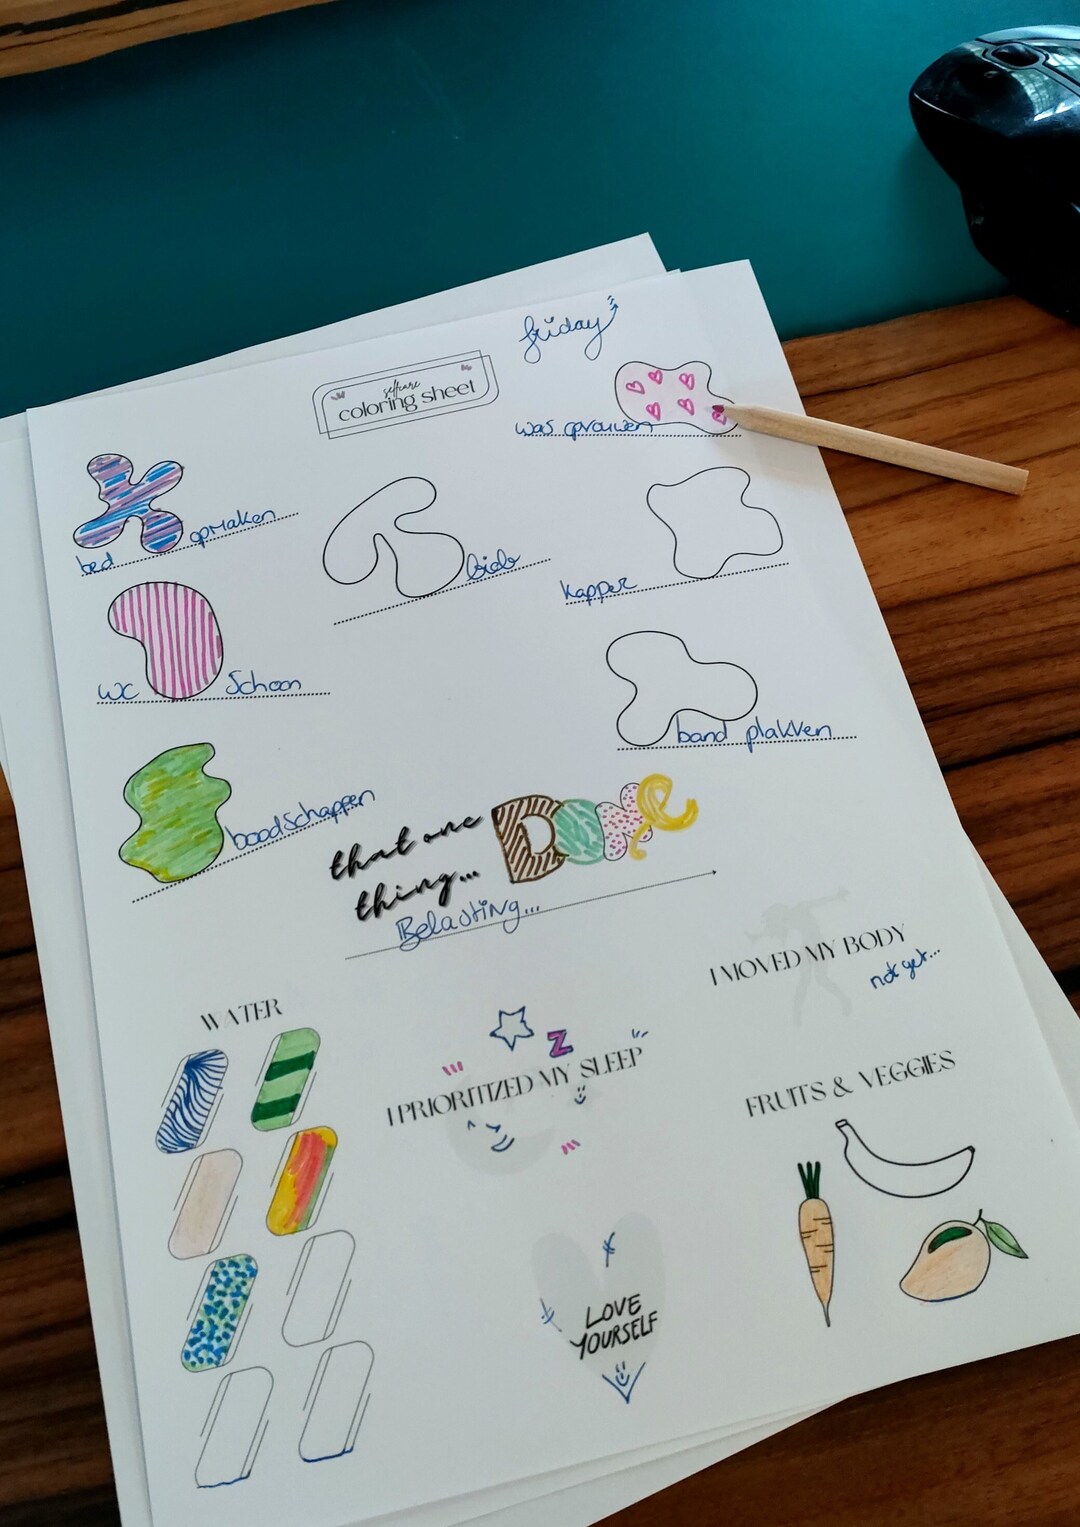 friday
selfcare
coloring sheet
was opvouwen
bed opmaken
kapper
wc schoon
band plakken
boodschappen
that one
thing... Done
Belasting...
I MOVED MY BODY
not yet...
WATER
Z
I PRIORITIZED MY SLEEP
FRUITS & VEGGIES
LOVE
YOURSELF